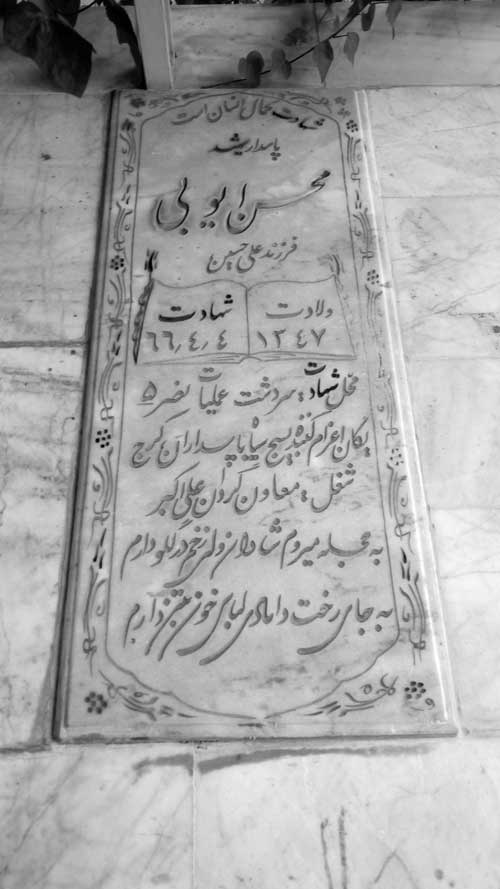 شهادت کمال انسان است
پاسدار رشید
محسن ایوبی
فرزند علی حسین
ولادت شهادت
۱۳٤۷ ٦٦٫٤٫٤
محل شهادت: سردشت عملیات نصر ۵
یگان اعزام کننده بسیج سپاه پاسداران کرج
شغل: معاون گردان علی اکبر
به حجله میروم شادان ولی زخم در گلو دارم
به جای رخت دامادی لباس خون به تن دارم